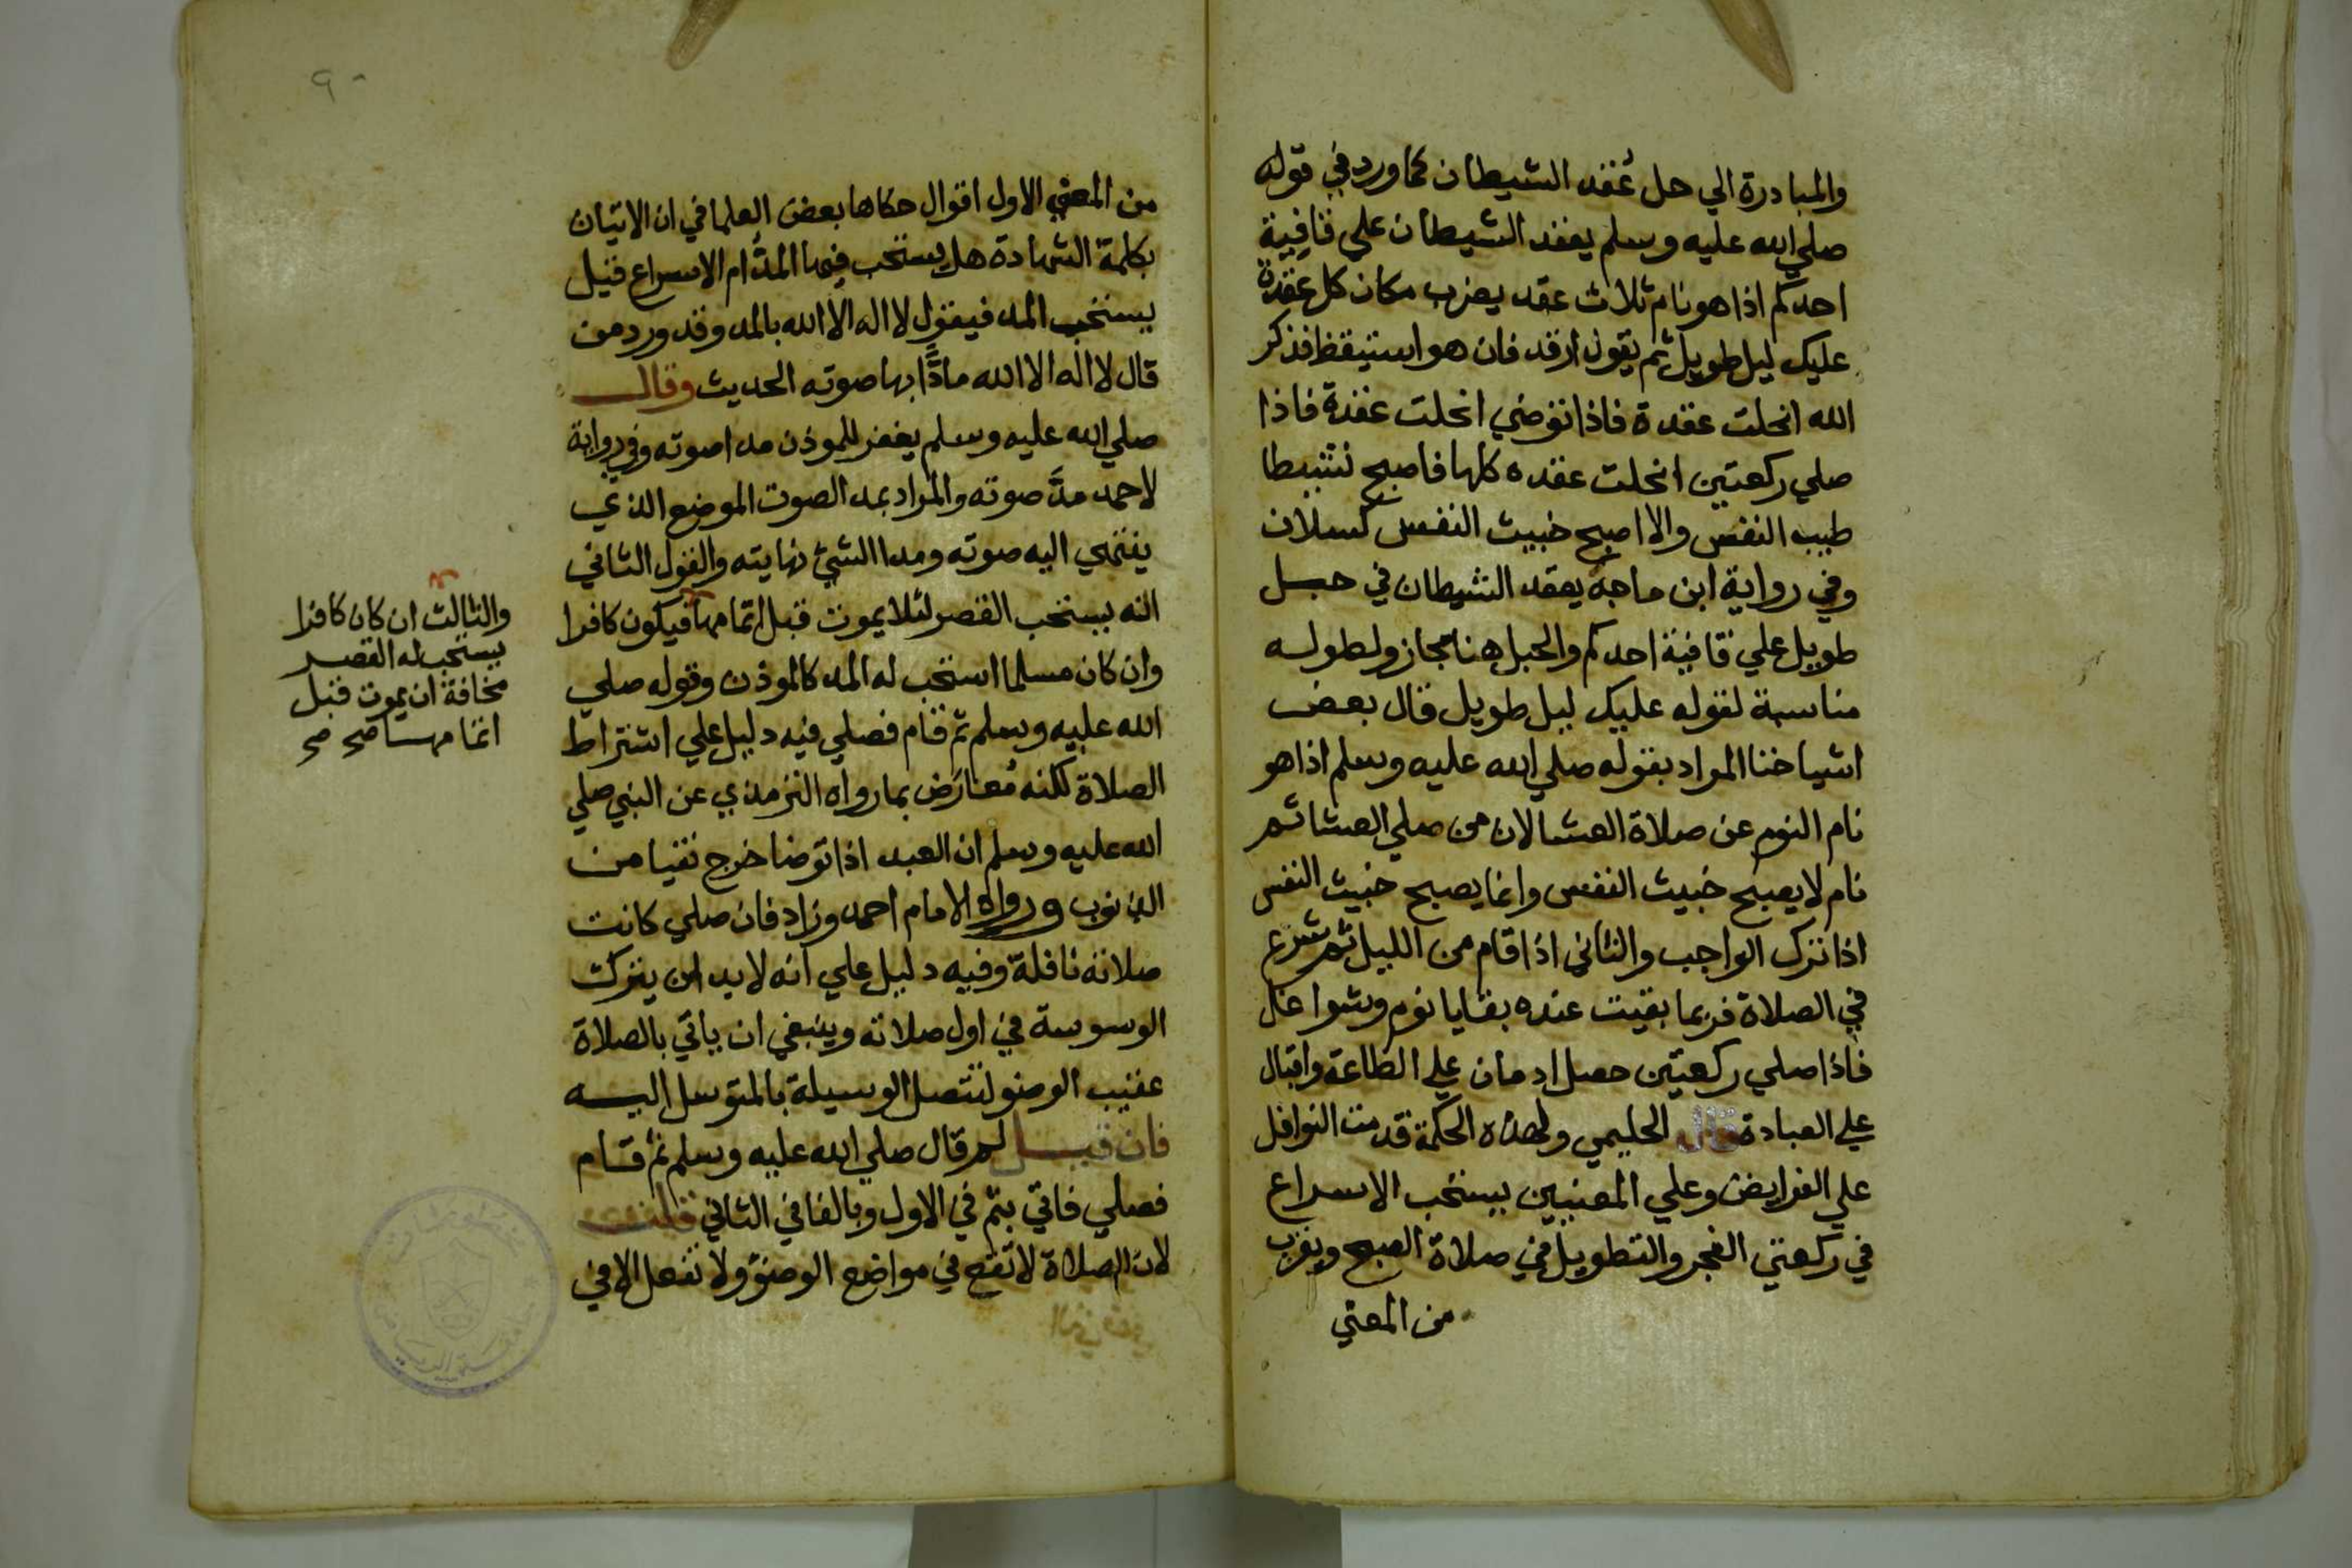 والمبادرة الي حل عُقد الشيطان كما ورد في قوله
صلي الله عليه وسلم يعقد الشيطان علي قافية
احدكم اذا هو نام ثلاث عقد يضرب مكان كل عقدة
عليك ليل طويل ثم يقول ارقد فان هو استيقظ فذكر
الله انحلت عقدة فاذا توضي انحلت عقدة فاذا
صلي ركعتين انحلت عقده كلها فاصبح نشيطا
طيب النفس والا اصبح خبيث النفس كسلان
وفي رواية ابن ماجة يعقد الشيطان في حبل
طويل علي قافية احدكم والحبل هنا مجاز ولطوله
مناسبة لقوله عليك ليل طويل قال بعض
اشياخنا المراد بقوله صلي الله عليه وسلم اذا هو
نام النوم عن صلاة العشا لان من صلي العشا ثم
نام لا يصبح خبيث النفس وانما يصبح خبيث النفس
اذا ترك الواجب والثاني اذا قام من الليل ثم شرع
في الصلاة فربما بقيت عنده بقايا نوم وشواغل
فاذا صلي ركعتين حصل ادمان علي الطاعة واقبال
علي العبادة قال الحليمي ولهذه الحكمة قدمت النوافل
علي الفرايض وعلي المعنيين يستحب الاسراع
في ركعتي الفجر والتطويل في صلاة الصبح ويقرب
من المعني
٩٠
من المعني الاول اقوال حكاها بعض العلما في ان الاتيان
بكلمة الشهادة هل يستحب فيها المدّ ام الاسراع قيل
يستحب المد فيقول لا اله الا الله بالمد وقد ورد من
قال لا اله الا الله مادًّا بها صوته الحديث وقال
صلي الله عليه وسلم يغفر للموذن مدا صوته وفي رواية
لاحمد مدَّ صوته والمراد بمد الصوت الموضع الذي
ينتهي اليه صوته ومدا الشيئ نهايته والقول الثاني
انه يستحب القصر لئلا يموت قبل اتمامها فيكون كافرا
وان كان مسلما استحب له المد كالموذن وقوله صلي
الله عليه وسلم ثم قام فصلي فيه دليل علي اشتراط
الصلاة لكنه مُعارَض بما رواه الترمذي عن النبي صلي
الله عليه وسلم ان العبد اذا توضا خرج نقيا من
الذنوب ورواه الامام احمد وزاد فان صلي كانت
صلاته نافلة وفيه دليل علي انه لابد ان يترك
الوسوسة في اول صلاته وينبغي ان ياتي بالصلاة
عقيب الوضو لتتصل الوسيلة بالمتوسل اليه
فان قيل لم قال صلي الله عليه وسلم ثم قام
فصلي فاتي بثم في الاول وبالفا في الثاني قلت
لان الصلاة لا تقع في مواضع الوضوّ ولا تفعل الا في
والثالث ان كان كافرا
يستحب له القصر
مخافة ان يموت قبل
اتمامها صح صح